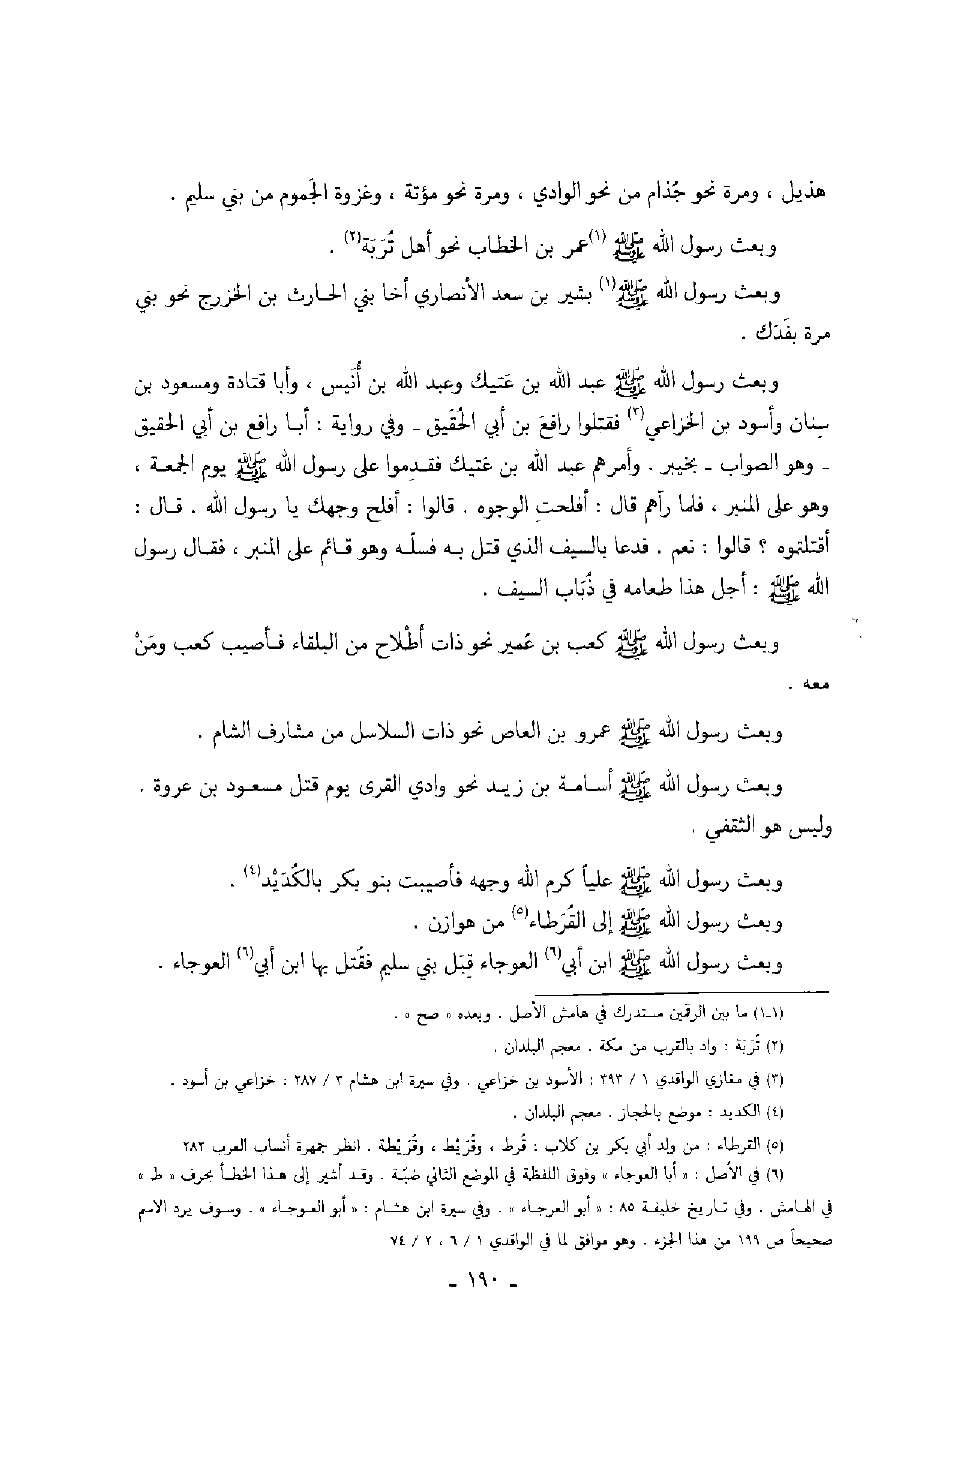 هذيل ، ومرة نحو جُذام من نحو الوادي ، ومرة نحو مؤتة ، وغزوة الجَموم من بني سليم .
وبعث رسول الله ﷺ (١)عمر بن الخطاب نحو أهل تُرَبَة(٢) .
وبعث رسول الله ﷺ(١) بشير بن سعد الأنصاري أخا بني الحارث بن الخزرج نحو بني
مرة بفَدَك .
وبعث رسول الله ﷺ عبد الله بن عَتيك وعبد الله بن أُنَيس ، وأبا قتادة ومسعود بن
سِنان وأسود بن الخزاعي(٣) فقتلوا رافعَ بن أبي الحُقَيق ـ وفي رواية : أبا رافع بن أبي الحقيق
ـ وهو الصواب ـ بخيبر . وأمرهم عبد الله بن عَتيك فقدِموا على رسول الله ﷺ يوم الجمعة ،
وهو على المنبر ، فلما رآهم قال : أفلحتِ الوجوه . قالوا : أفلح وجهك يا رسول الله . قال :
أقتلتموه ؟ قالوا : نعم . فدعا بالسيف الذي قتل به فسلّه وهو قائم على المنبر ، فقال رسول
الله ﷺ : أجل هذا طعامه في ذُبَاب السيف .
وبعث رسول الله ﷺ كعب بن عُمير نحو ذات أطْلاح من البلقاء فأصيب كعب ومَنْ
معه .
وبعث رسول الله ﷺ عمرو بن العاص نحو ذات السلاسل من مشارف الشام .
وبعث رسول الله ﷺ أسامة بن زيد نحو وادي القرى يوم قتل مسعود بن عروة .
وليس هو الثقفي .
وبعث رسول الله ﷺ علياً كرم الله وجهه فأصيبت بنو بكر بالكُدَيْد(٤) .
وبعث رسول الله ﷺ إلى القُرَطاء(٥) من هوازن .
وبعث رسول الله ﷺ ابن أبي(٦) العوجاء قِبَل بني سليم فقُتل بها ابن أبي(٦) العوجاء .
(١-١) ما بين الرقمين مستدرك في هامش الأصل . وبعده « صح » .
(٢) تُرَبَة : واد بالقرب من مكة . معجم البلدان .
(٣) في مغازي الواقدي ١ / ٣٩٣ : الأسود بن خزاعي . وفي سيرة ابن هشام ٣ / ٢٨٧ : خزاعي بن أسود .
(٤) الكديد : موضع بالحجاز . معجم البلدان .
(٥) القرطاء : من ولد أبي بكر بن كلاب : قُرط ، وقُرَيْط ، وقُرَيْطة . انظر جمهرة أنساب العرب ٢٨٢
(٦) في الأصل : « أبا العوجاء » وفوق اللفظة في الموضع الثاني ضبّة . وقد أشير إلى هذا الخطأ بحرف « ط »
في الهامش . وفي تاريخ خليفة ٨٥ : « أبو العرجاء » . وفي سيرة ابن هشام : « أبو العوجاء » . وسوف يرد الاسم
صحيحاً ص ١٩٩ من هذا الجزء . وهو موافق لما في الواقدي ١ / ٦ ، ٢ / ٧٤
ـ ١٩٠ ـ